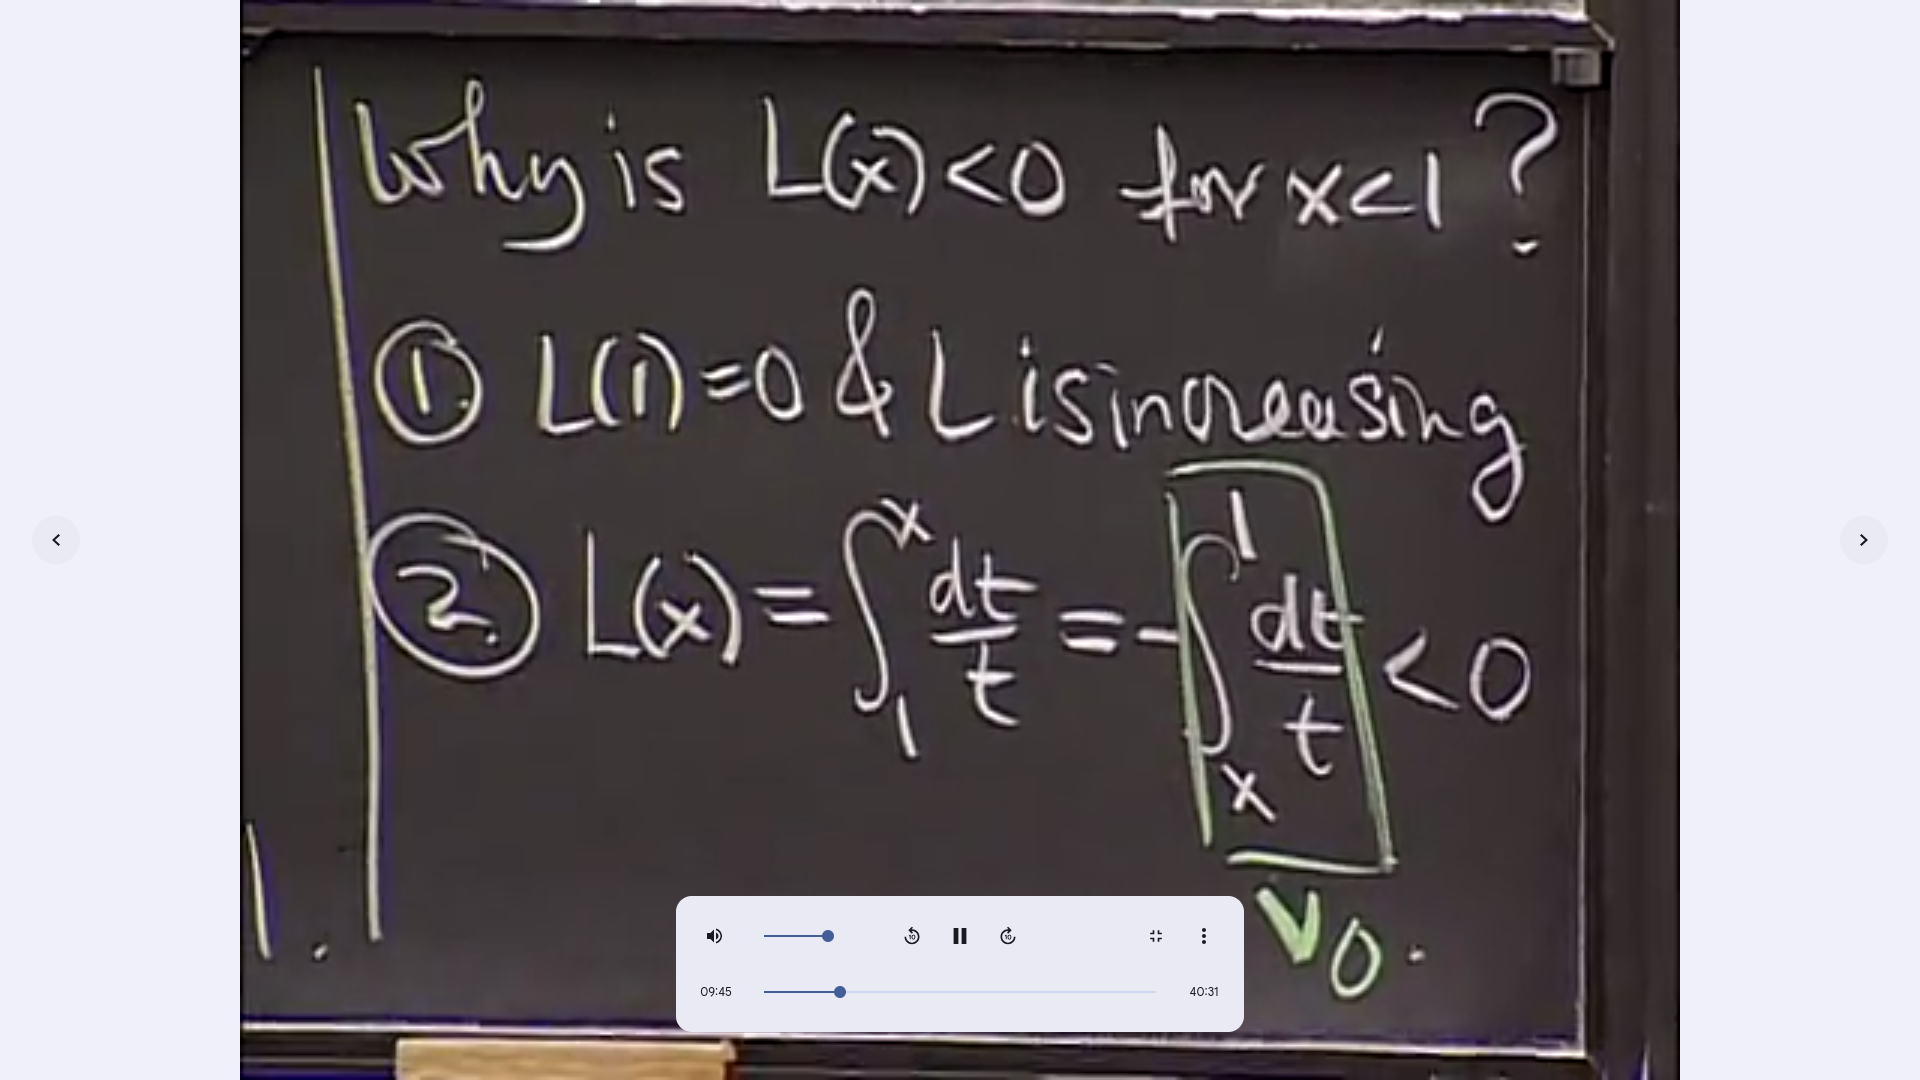 Why is L(x)<0 for x<1?
1. L(1)=0 & L is increasing
2. L(x)=∫₁ˣ dt/t = -∫ₓ¹ dt/t < 0
V 0.
1.
10 10
09:45 40:31